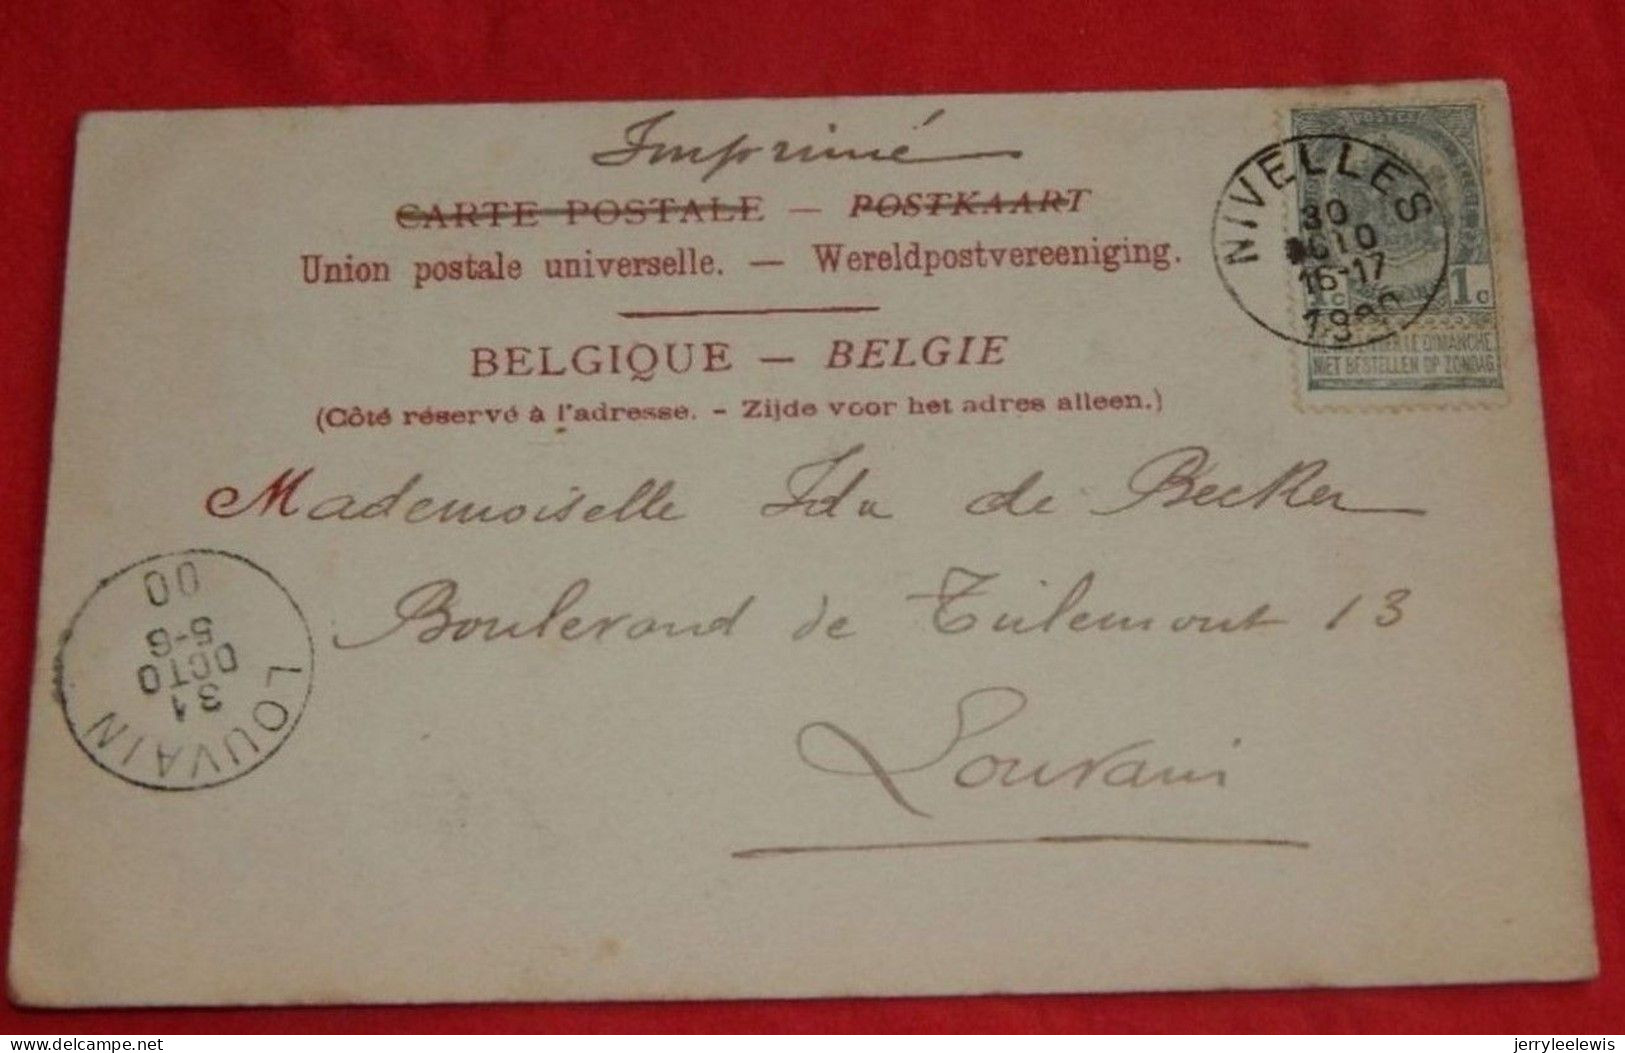 Imprimé
CARTE POSTALE — POSTKAART
Union postale universelle. — Wereldpostvereeniging.
BELGIQUE — BELGIE
(Côté réservé à l'adresse. - Zijde voor het adres alleen.)
NIVELLES
30
OCTO
16-17
POSTES
1c 1c
LE DIMANCHE
NIET BESTELLEN OP ZONDAG
Mademoiselle Ida de Becker
Boulevard de Tirlemont 13
Louvain
LOUVAIN
31
OCTO
5-6
00
delcampe.net
jerryleelewis